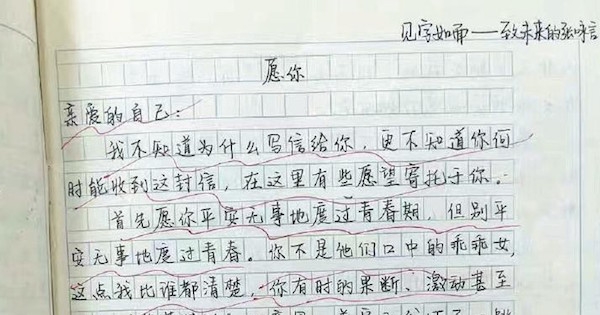 见字如面——致未来的张咏言
愿你
亲爱的自己：
我不知道为什么写信给你，更不知道你何
时能收到这封信，在这里有些愿望寄托于你。
首先愿你平安无事地度过青春期，但别平
安无事地度过青春。你不是他们口中的乖乖女，
这点我比谁都清楚，你有时的果断、激动甚至